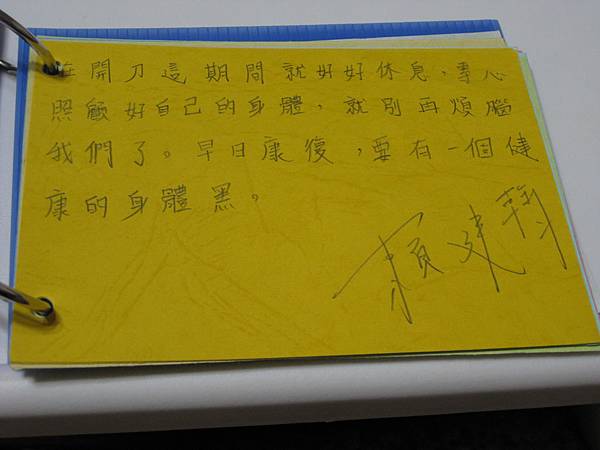 在開刀這期間就好好休息，專心
照顧好自己的身體，就別再煩腦
我們了。早日康復，要有一個健
康的身體黑。
賴建翰